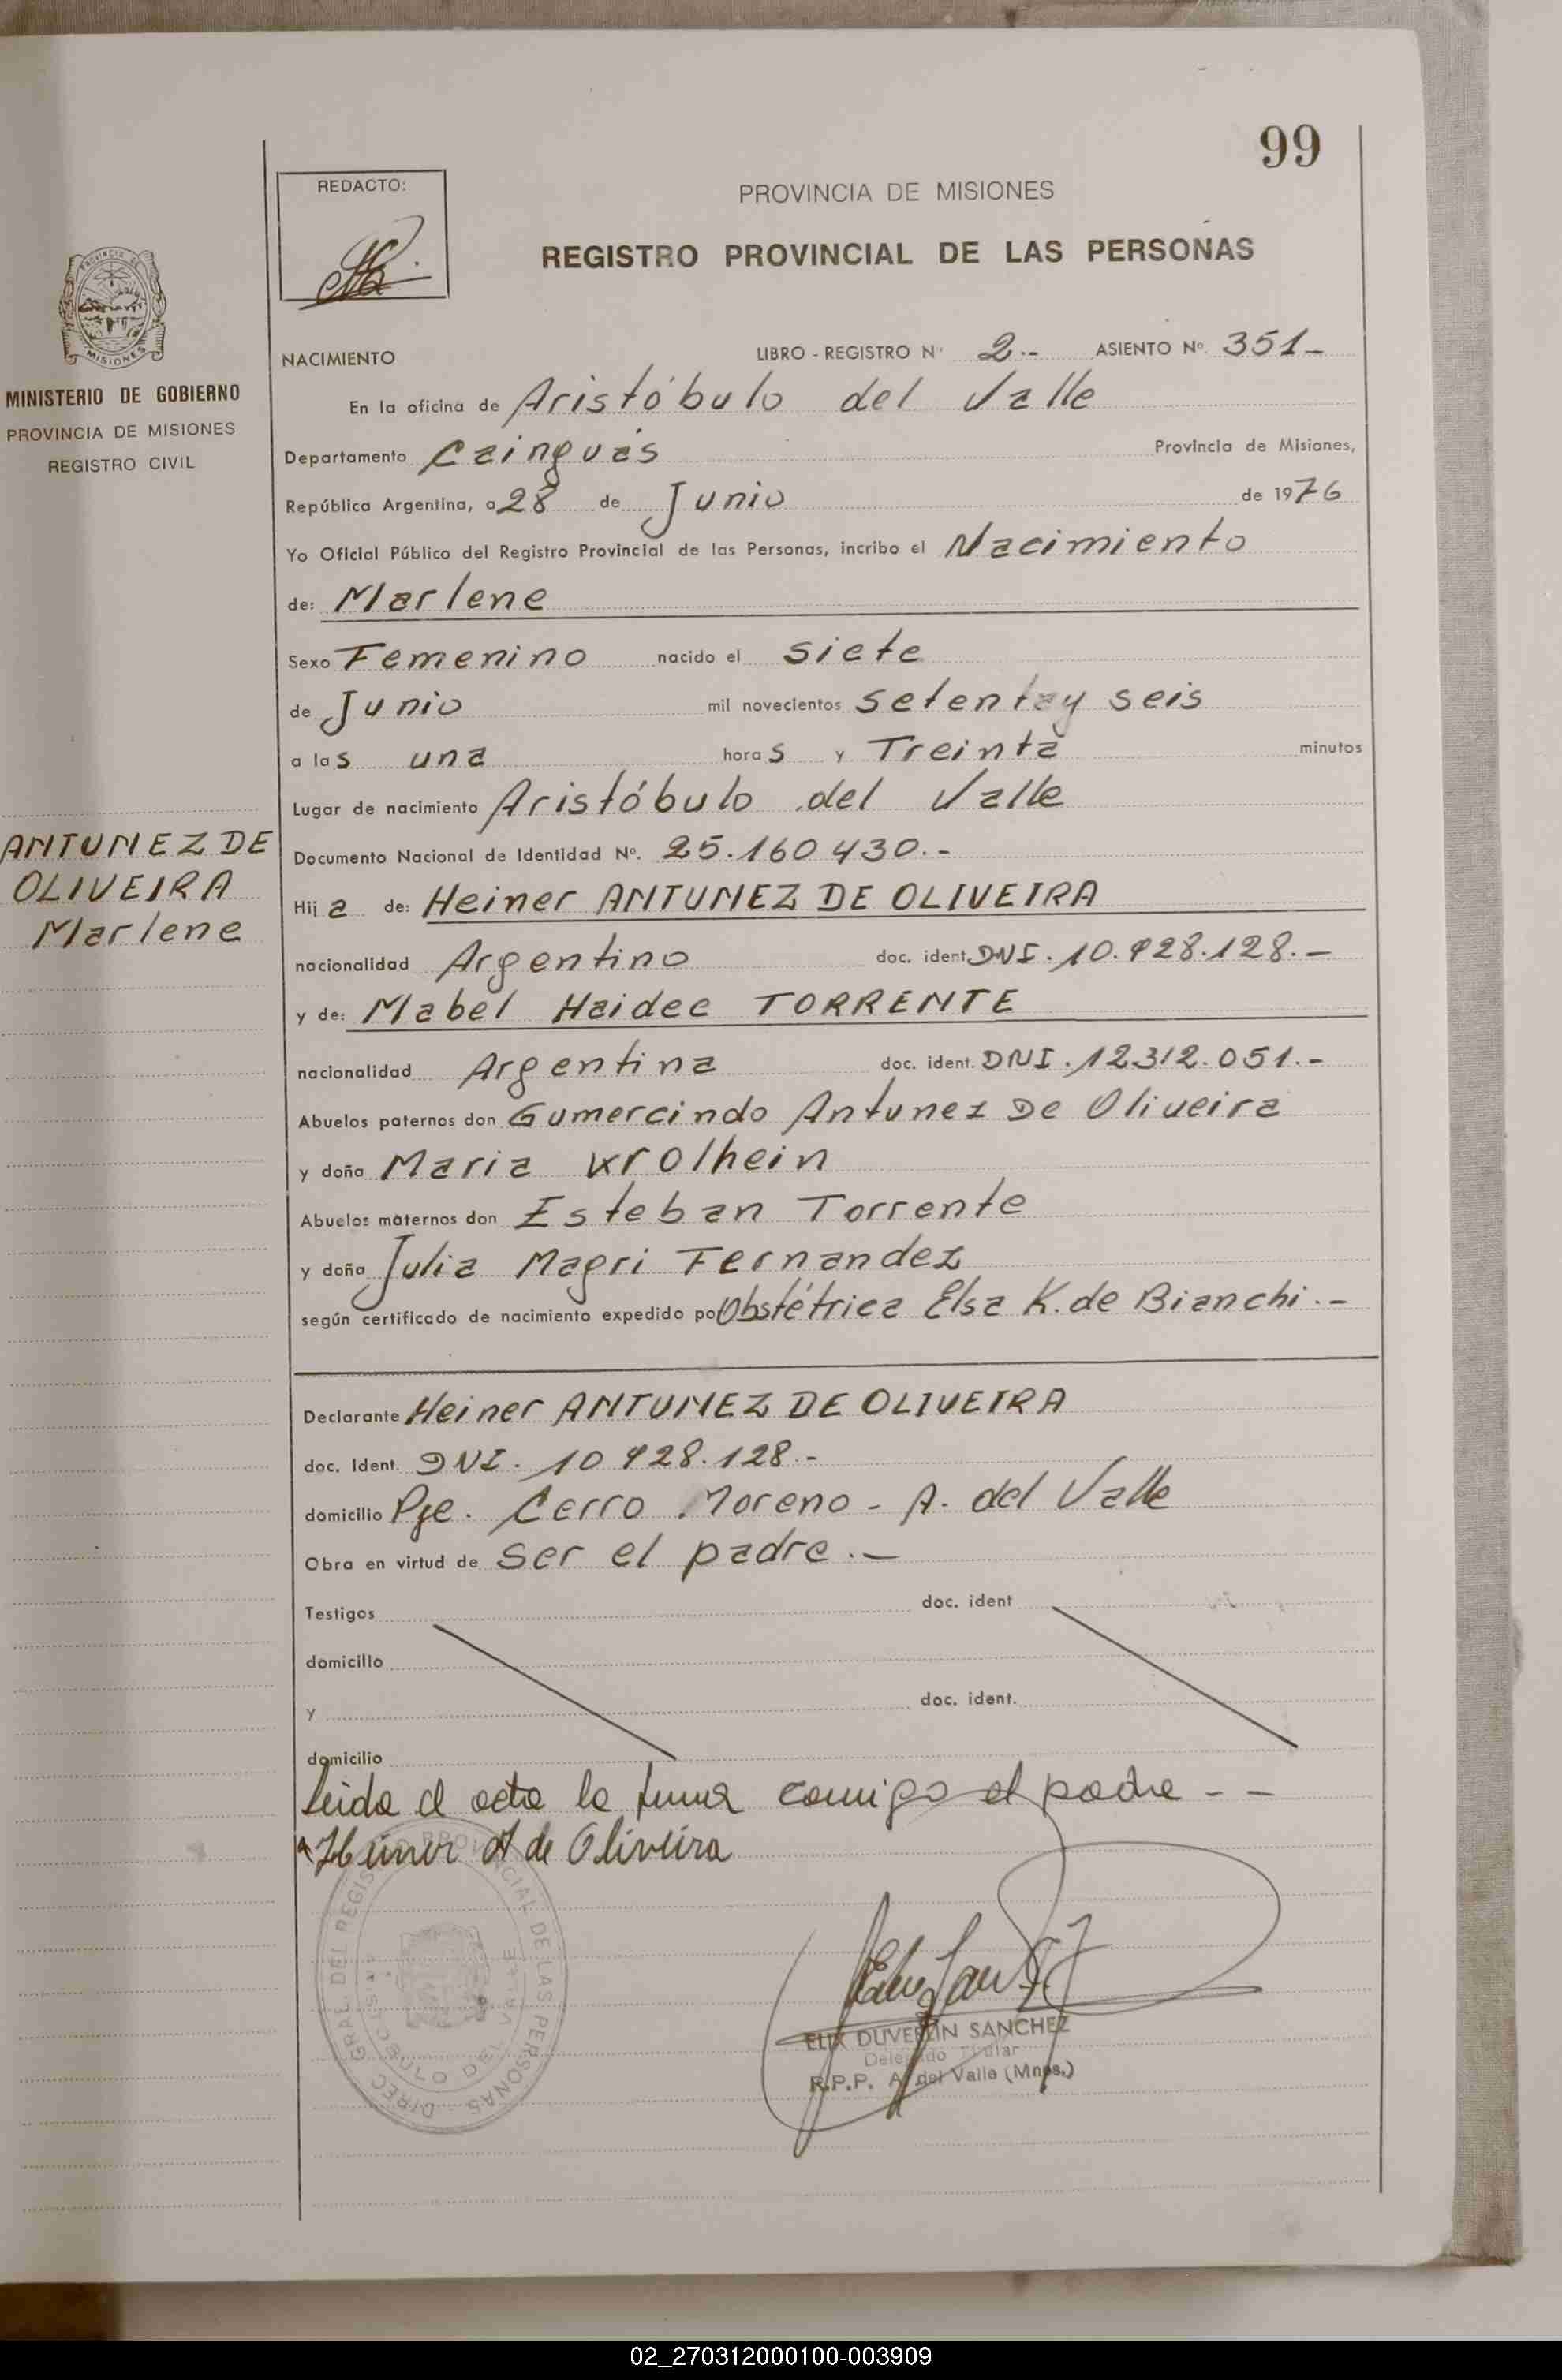 99
REDACTO:
PROVINCIA DE MISIONES
REGISTRO PROVINCIAL DE LAS PERSONAS
MISIONES
MINISTERIO DE GOBIERNO
PROVINCIA DE MISIONES
REGISTRO CIVIL
NACIMIENTO LIBRO - REGISTRO Nº 2.- ASIENTO Nº. 351-
En la oficina de Aristóbulo del Valle
Departamento Cainguás Provincia de Misiones,
República Argentina, a 28 de Junio de 1976
Yo Oficial Público del Registro Provincial de las Personas, incribo el Nacimiento
de: Marlene
Sexo Femenino nacido el siete
de Junio mil novecientos setenta y seis
a las una horas y Treinta minutos
Lugar de nacimiento Aristóbulo del Valle
ANTUNEZ DE
OLIVEIRA
Marlene
Documento Nacional de Identidad Nº. 25.160430.-
Hija de: Heiner ANTUNEZ DE OLIVEIRA
nacionalidad Argentino doc. ident. DNI. 10.928.128.-
y de: Mabel Haidee TORRENTE
nacionalidad Argentina doc. ident. DNI. 12312.051.-
Abuelos paternos don Gumercindo Antunez De Oliveira
y doña Maria Krolhein
Abuelos maternos don Esteban Torrente
y doña Julia Magri Fernandez
según certificado de nacimiento expedido por Obstétrica Elsa K. de Bianchi.-
Declarante Heiner ANTUNEZ DE OLIVEIRA
doc. Ident. DNI. 10 928.128.-
domicilio Pje. Cerro Moreno - A. del Valle
Obra en virtud de ser el padre.-
Testigos doc. ident
domicilio
y doc. ident.
domicilio
Leida el acta la firma conmigo el padre - -
Heiner A de Oliveira
DIREC. GRAL. DEL REGISTRO PROVINCIAL DE LAS PERSONAS
ELIX DUVERLIN SANCHEZ
Delegado Titular
R.P.P. A. del Valle (Mnes.)
02_270312000100-003909